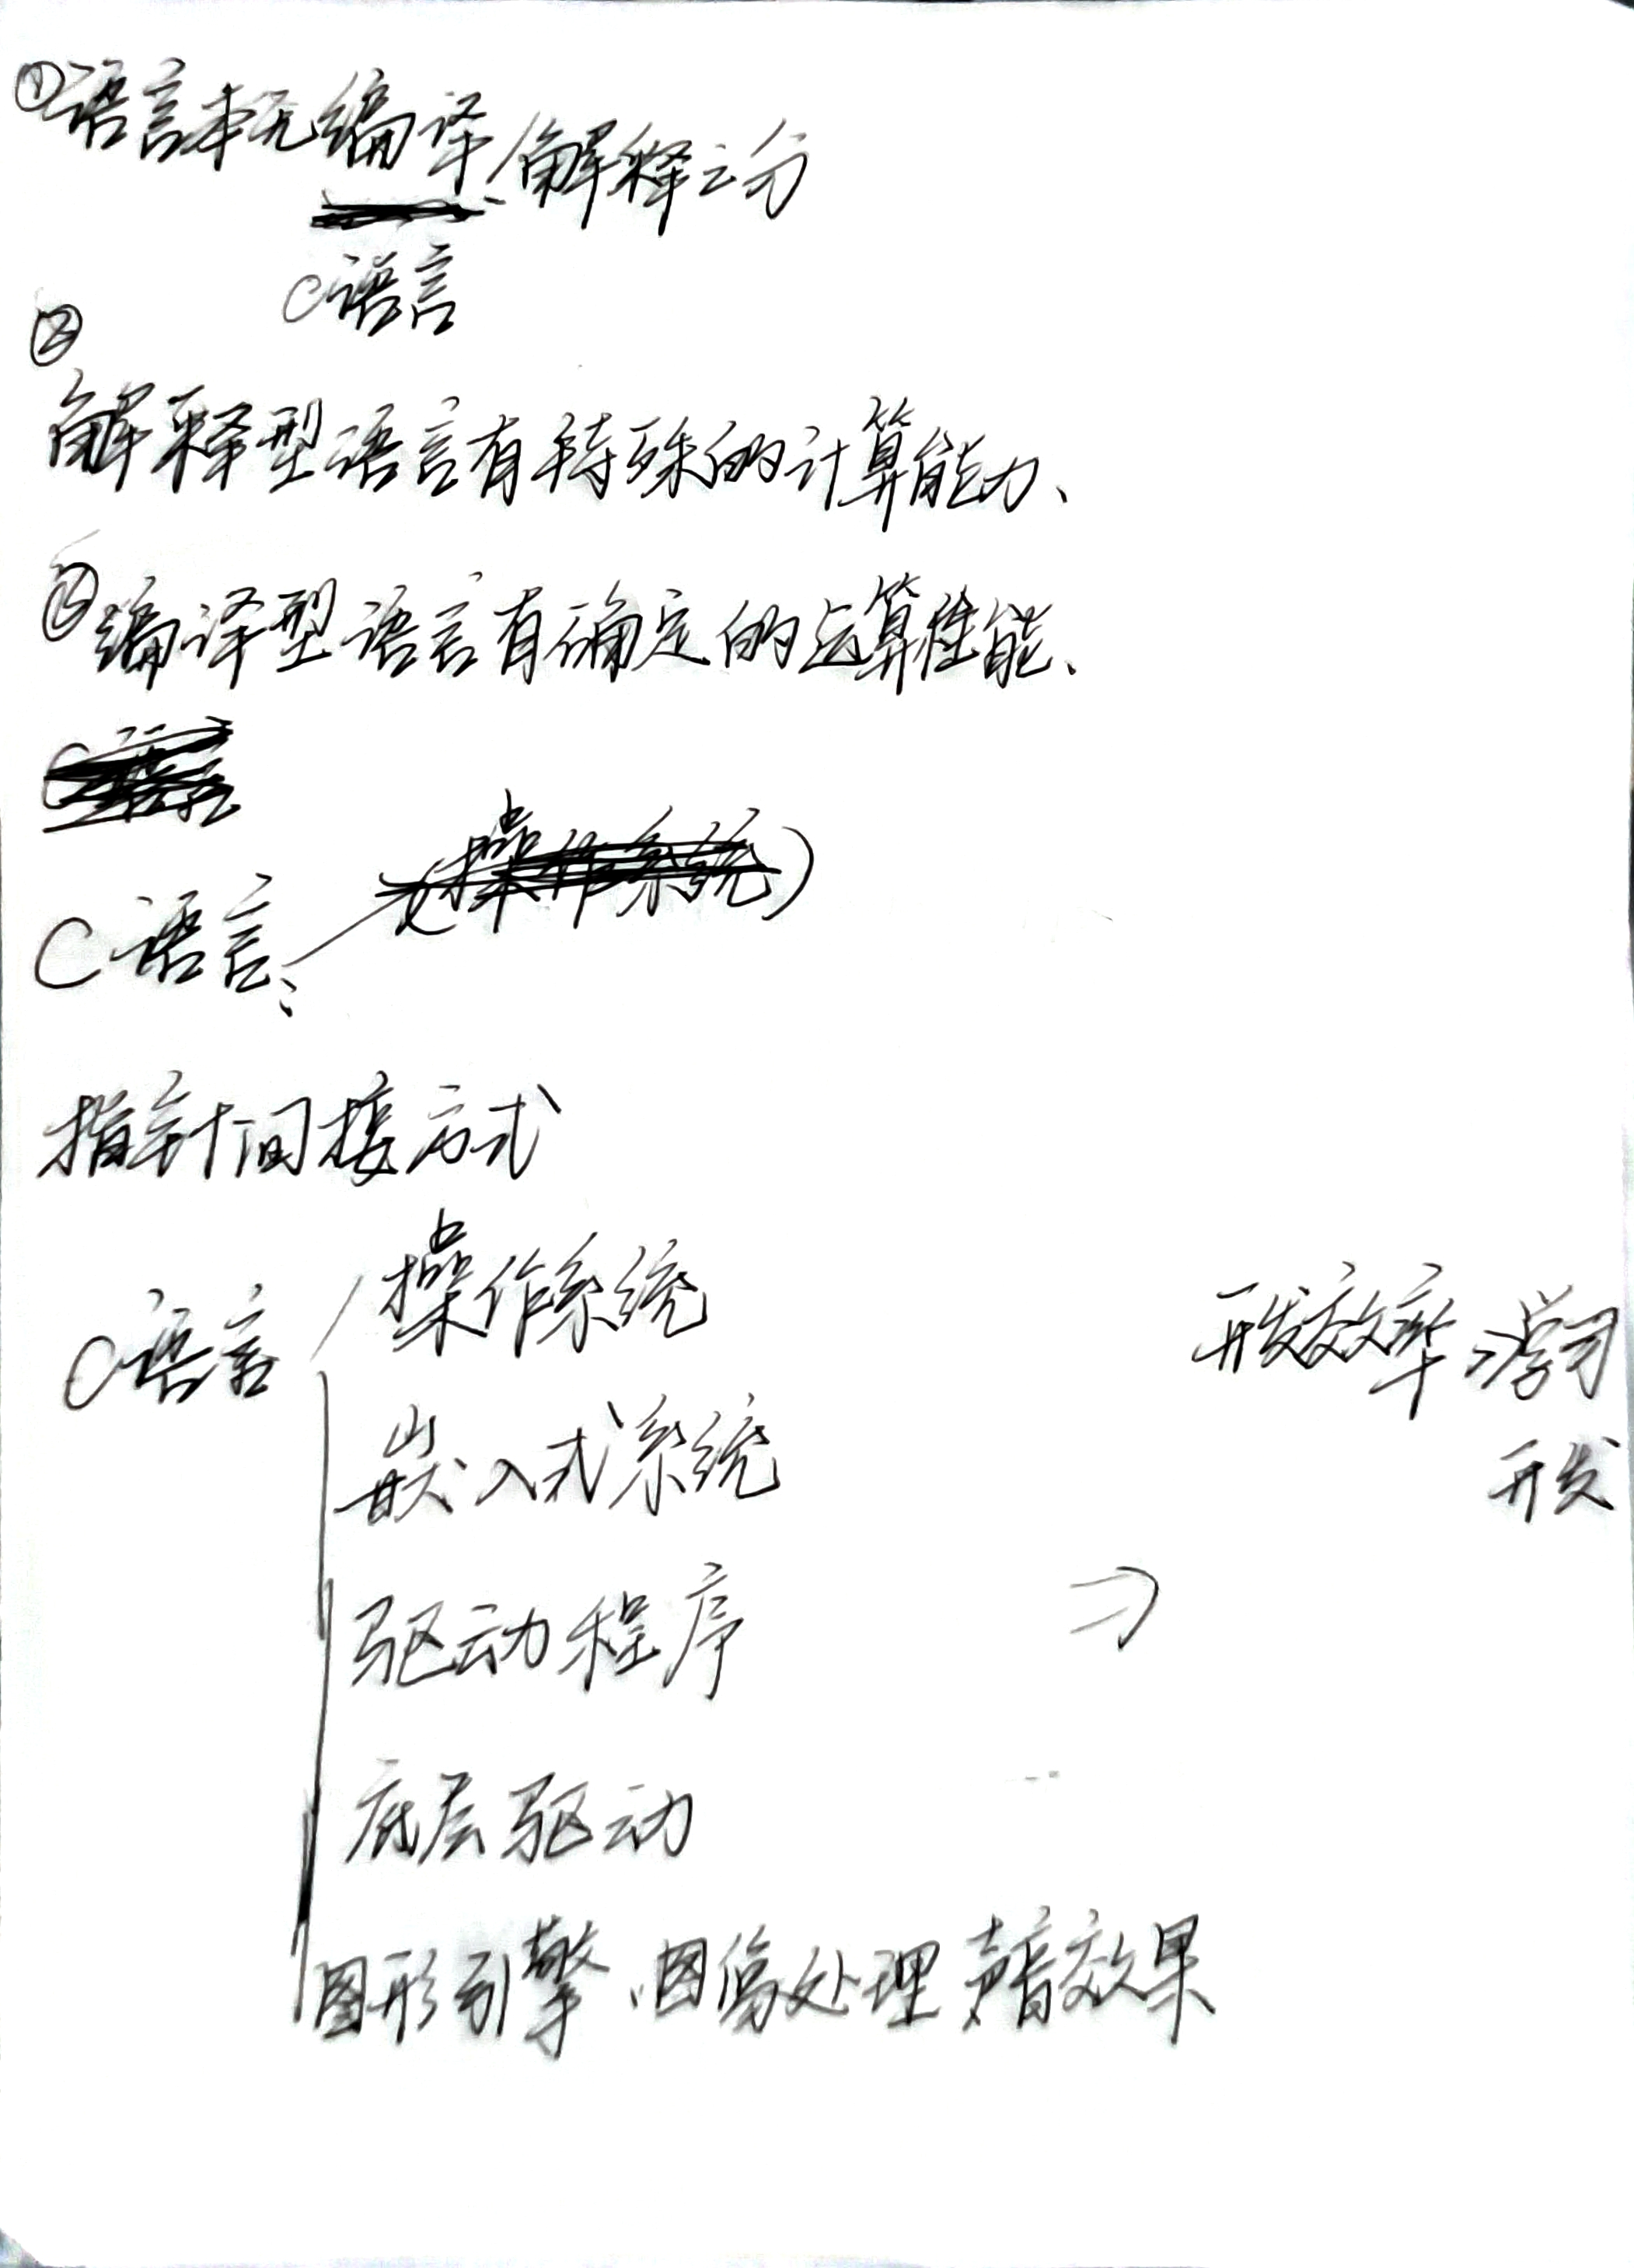 ①语言本无编译/解释之分
C语言
②
解释型语言有特殊的计算能力、
③编译型语言有确定的运算性能、
C语言、
指针间接方式
C语言
操作系统
嵌入式系统
驱动程序
底层驱动
图形引擎、图像处理 声音效果
开发效率
学习
开发